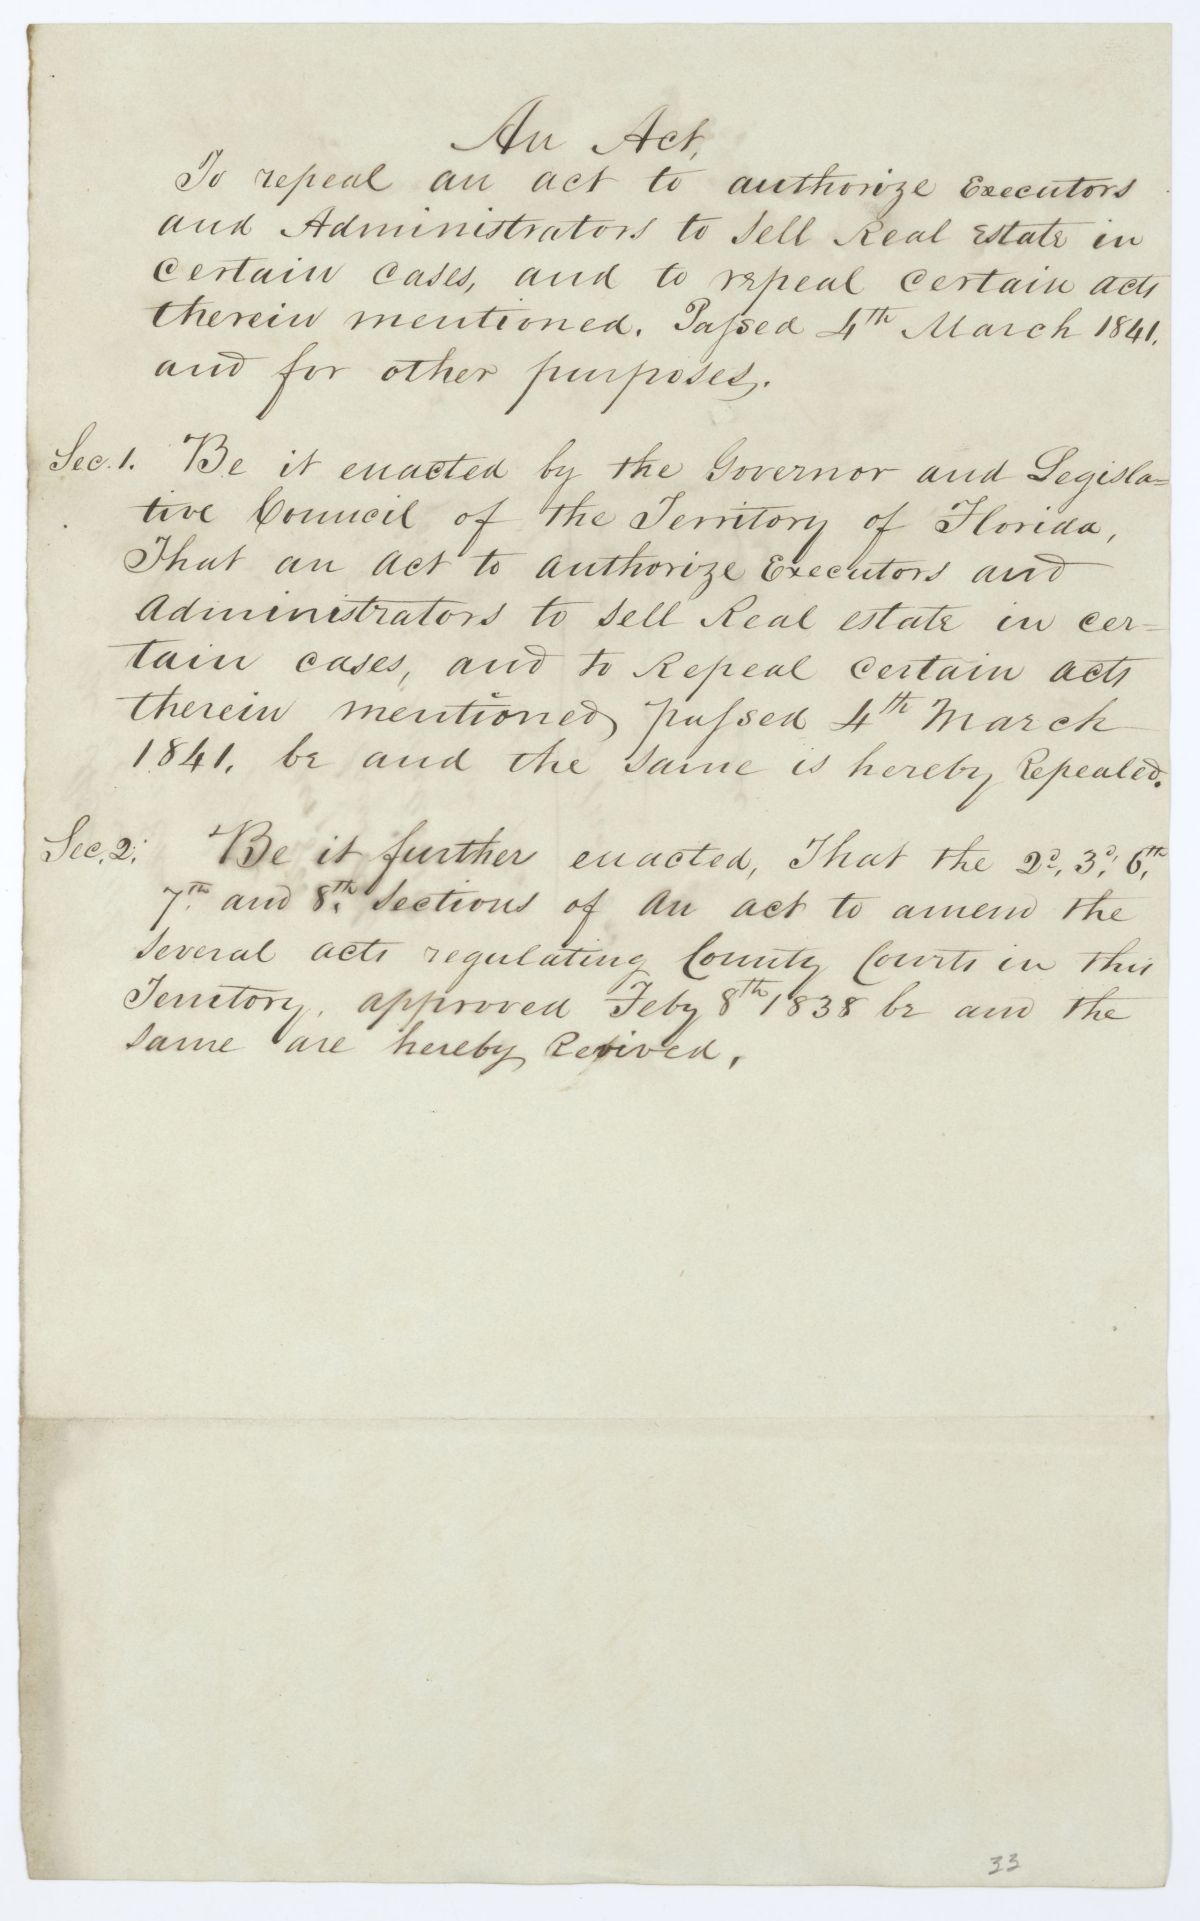 An Act,
To repeal an act to authorize Executors
and Administrators to sell Real Estate in
certain cases, and to repeal certain acts
therein mentioned. Passed 4th March 1841.
and for other purposes.
Sec. 1. Be it enacted by the Governor and Legisla=
tive Council of the Territory of Florida,
That an act to authorize Executors and
Administrators to sell Real estate in cer=
tain cases, and to Repeal certain acts
therein mentioned, passed 4th March
1841. be and the same is hereby Repealed.
Sec. 2. Be it further enacted, That the 2d, 3d, 6th,
7th and 8th sections of an act to amend the
several acts regulating County Courts in this
Territory, approved Feby 8th 1838 be and the
same are hereby Revived.
33